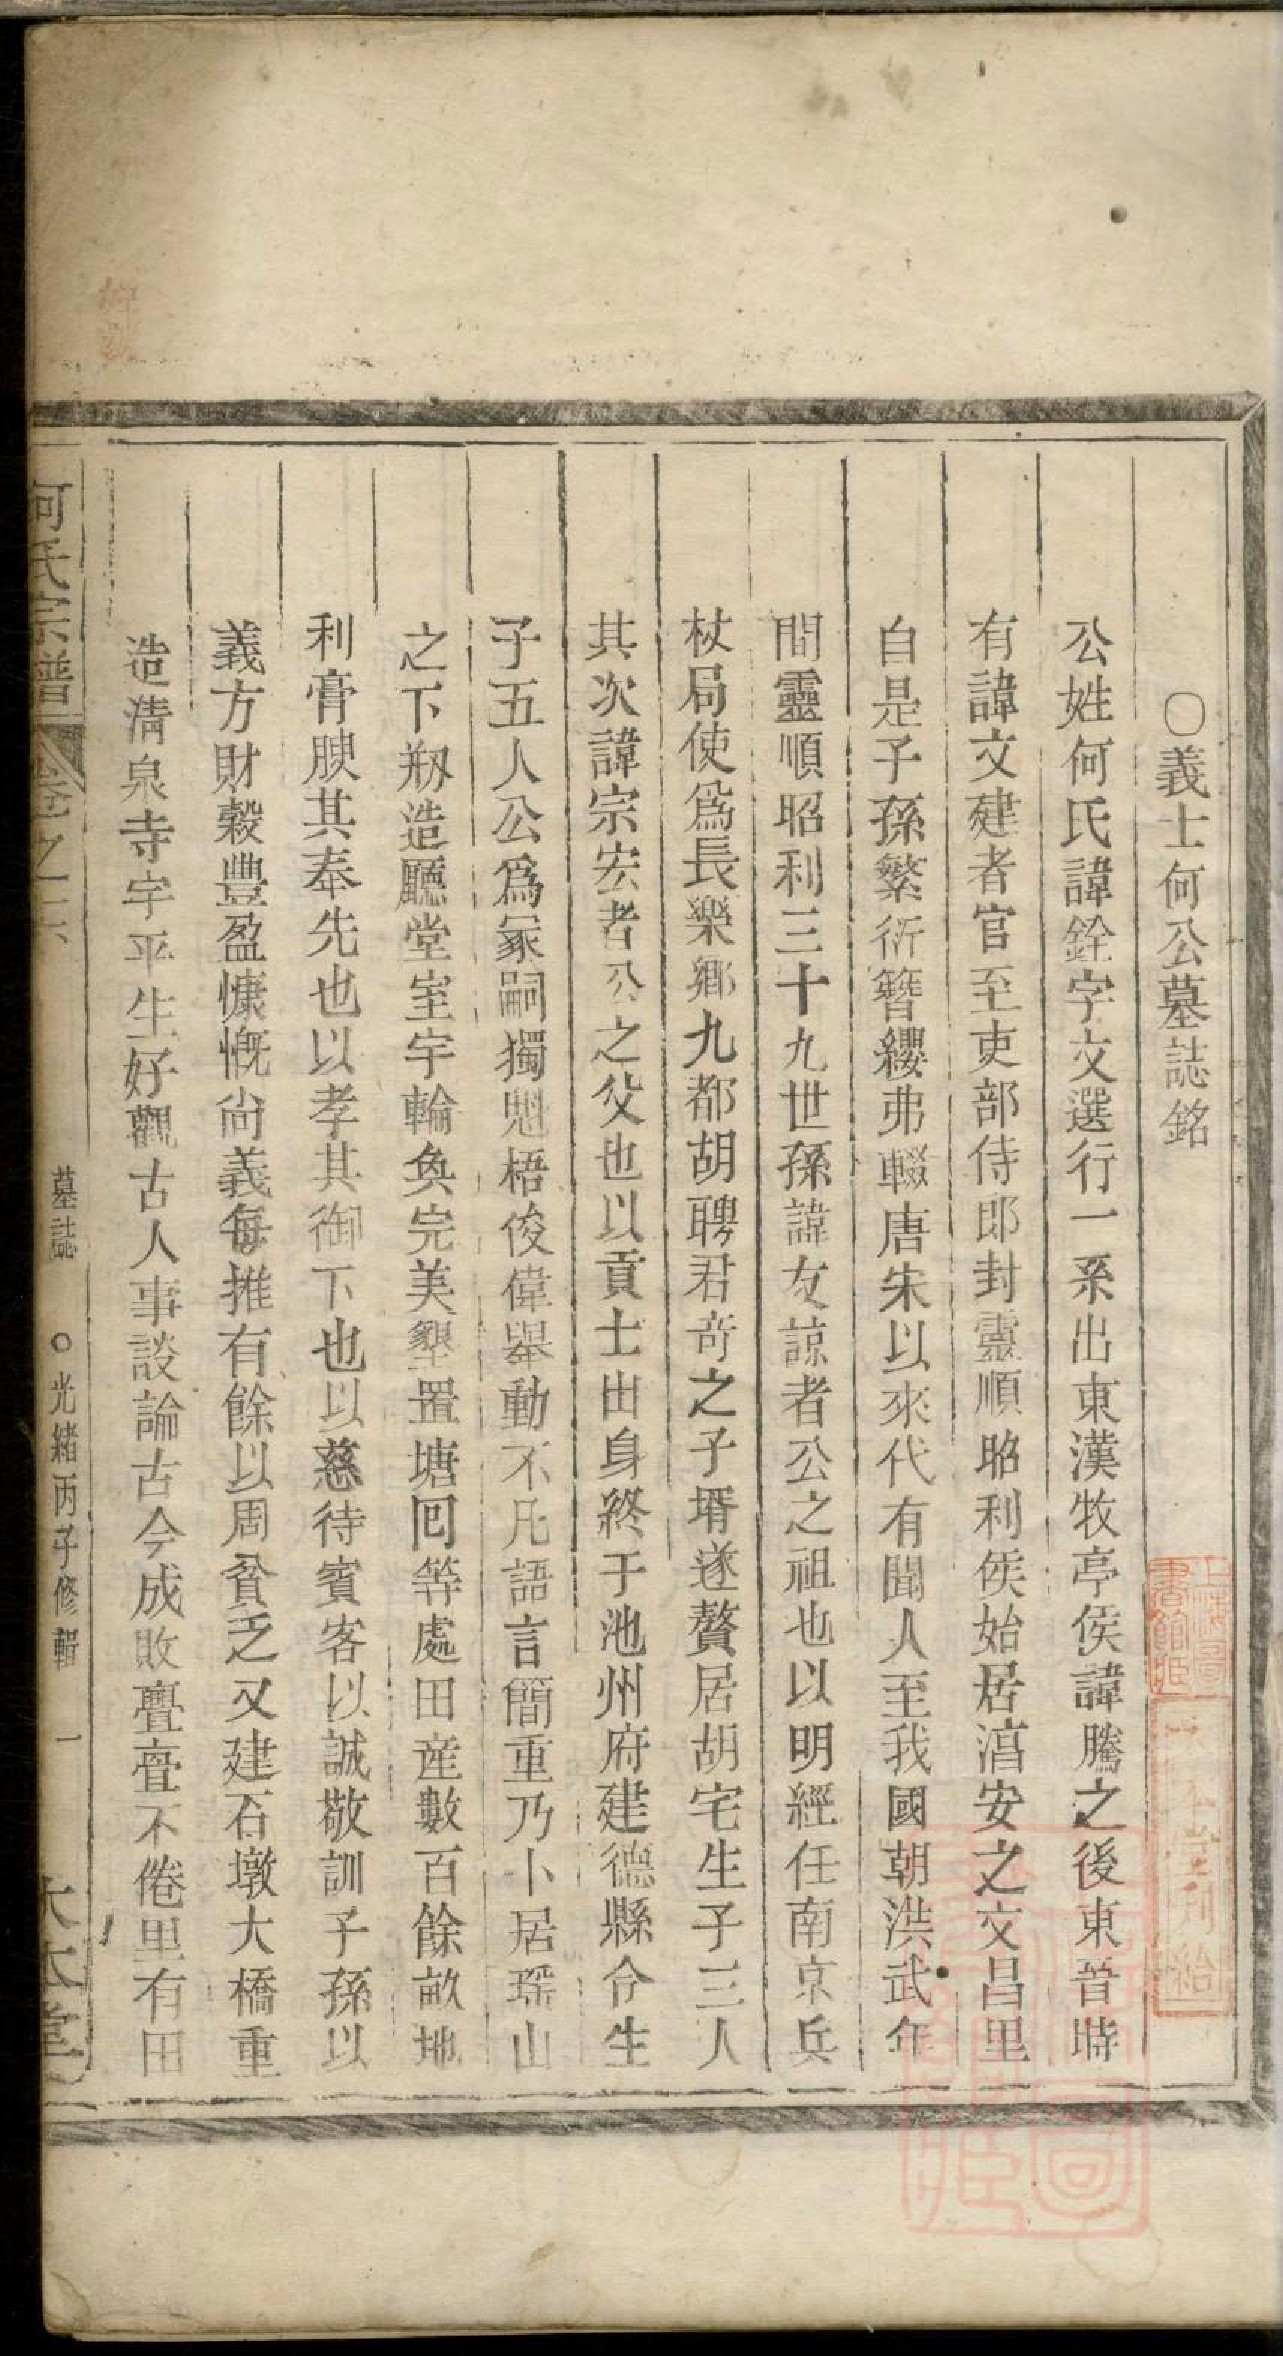 〇義士何公墓誌銘
公姓何氏諱銓字文選行一系出東漢牧亭侯諱騰之後東晉時
有諱文建者官至吏部侍郎封靈順昭利侯始居湻安之文昌里
自是子孫繁衍簪纓弗輟唐宋以來代有聞人至我國朝洪武年
間靈順昭利三十九世孫諱友諒者公之祖也以明經任南京兵
杖局使爲長樂鄉九都胡聘君竒之子壻遂贅居胡宅生子三人
其次諱宗宏者公之父也以貢士出身終于池州府建德縣令生
子五人公爲冢嗣獨魁梧俊偉舉動不凡語言簡重乃卜居瑶山
之下剏造廳堂室宇輪奐完美墾置塘囘等處田產數百餘畝地
利膏腴其奉先也以孝其御下也以慈待賓客以誠敬訓子孫以
義方財穀豐盈慷慨尚義每推有餘以周貧乏又建石墩大橋重
造淸泉寺宇平生好觀古人事談論古今成敗亹亹不倦里有田
何氏宗譜 卷之六 墓誌 〇光緒丙子修輯 一 大本堂